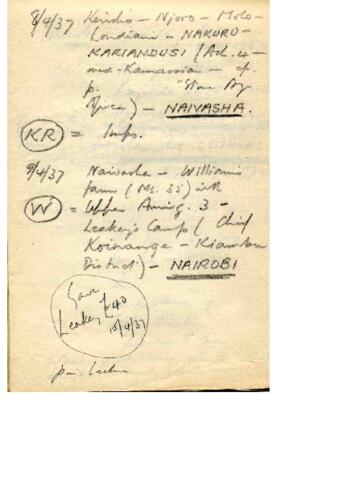 8/4/37 Kericho - Njoro - Molo -
Londiani - NAKURU -
KARIANDUSI (Ach. 4 -
med. Kamasia - cf.
p. "Stone Age
Africa") - NAIVASHA.
KR = Imps.
9/4/37 Naivasha - Williams
farm (No. 35) with
W = Upper Aurig. 3 -
Leakey's Camp (Chief
Koinange - Kiambu
District) - NAIROBI
Gave
Leakey £40
10/4/37